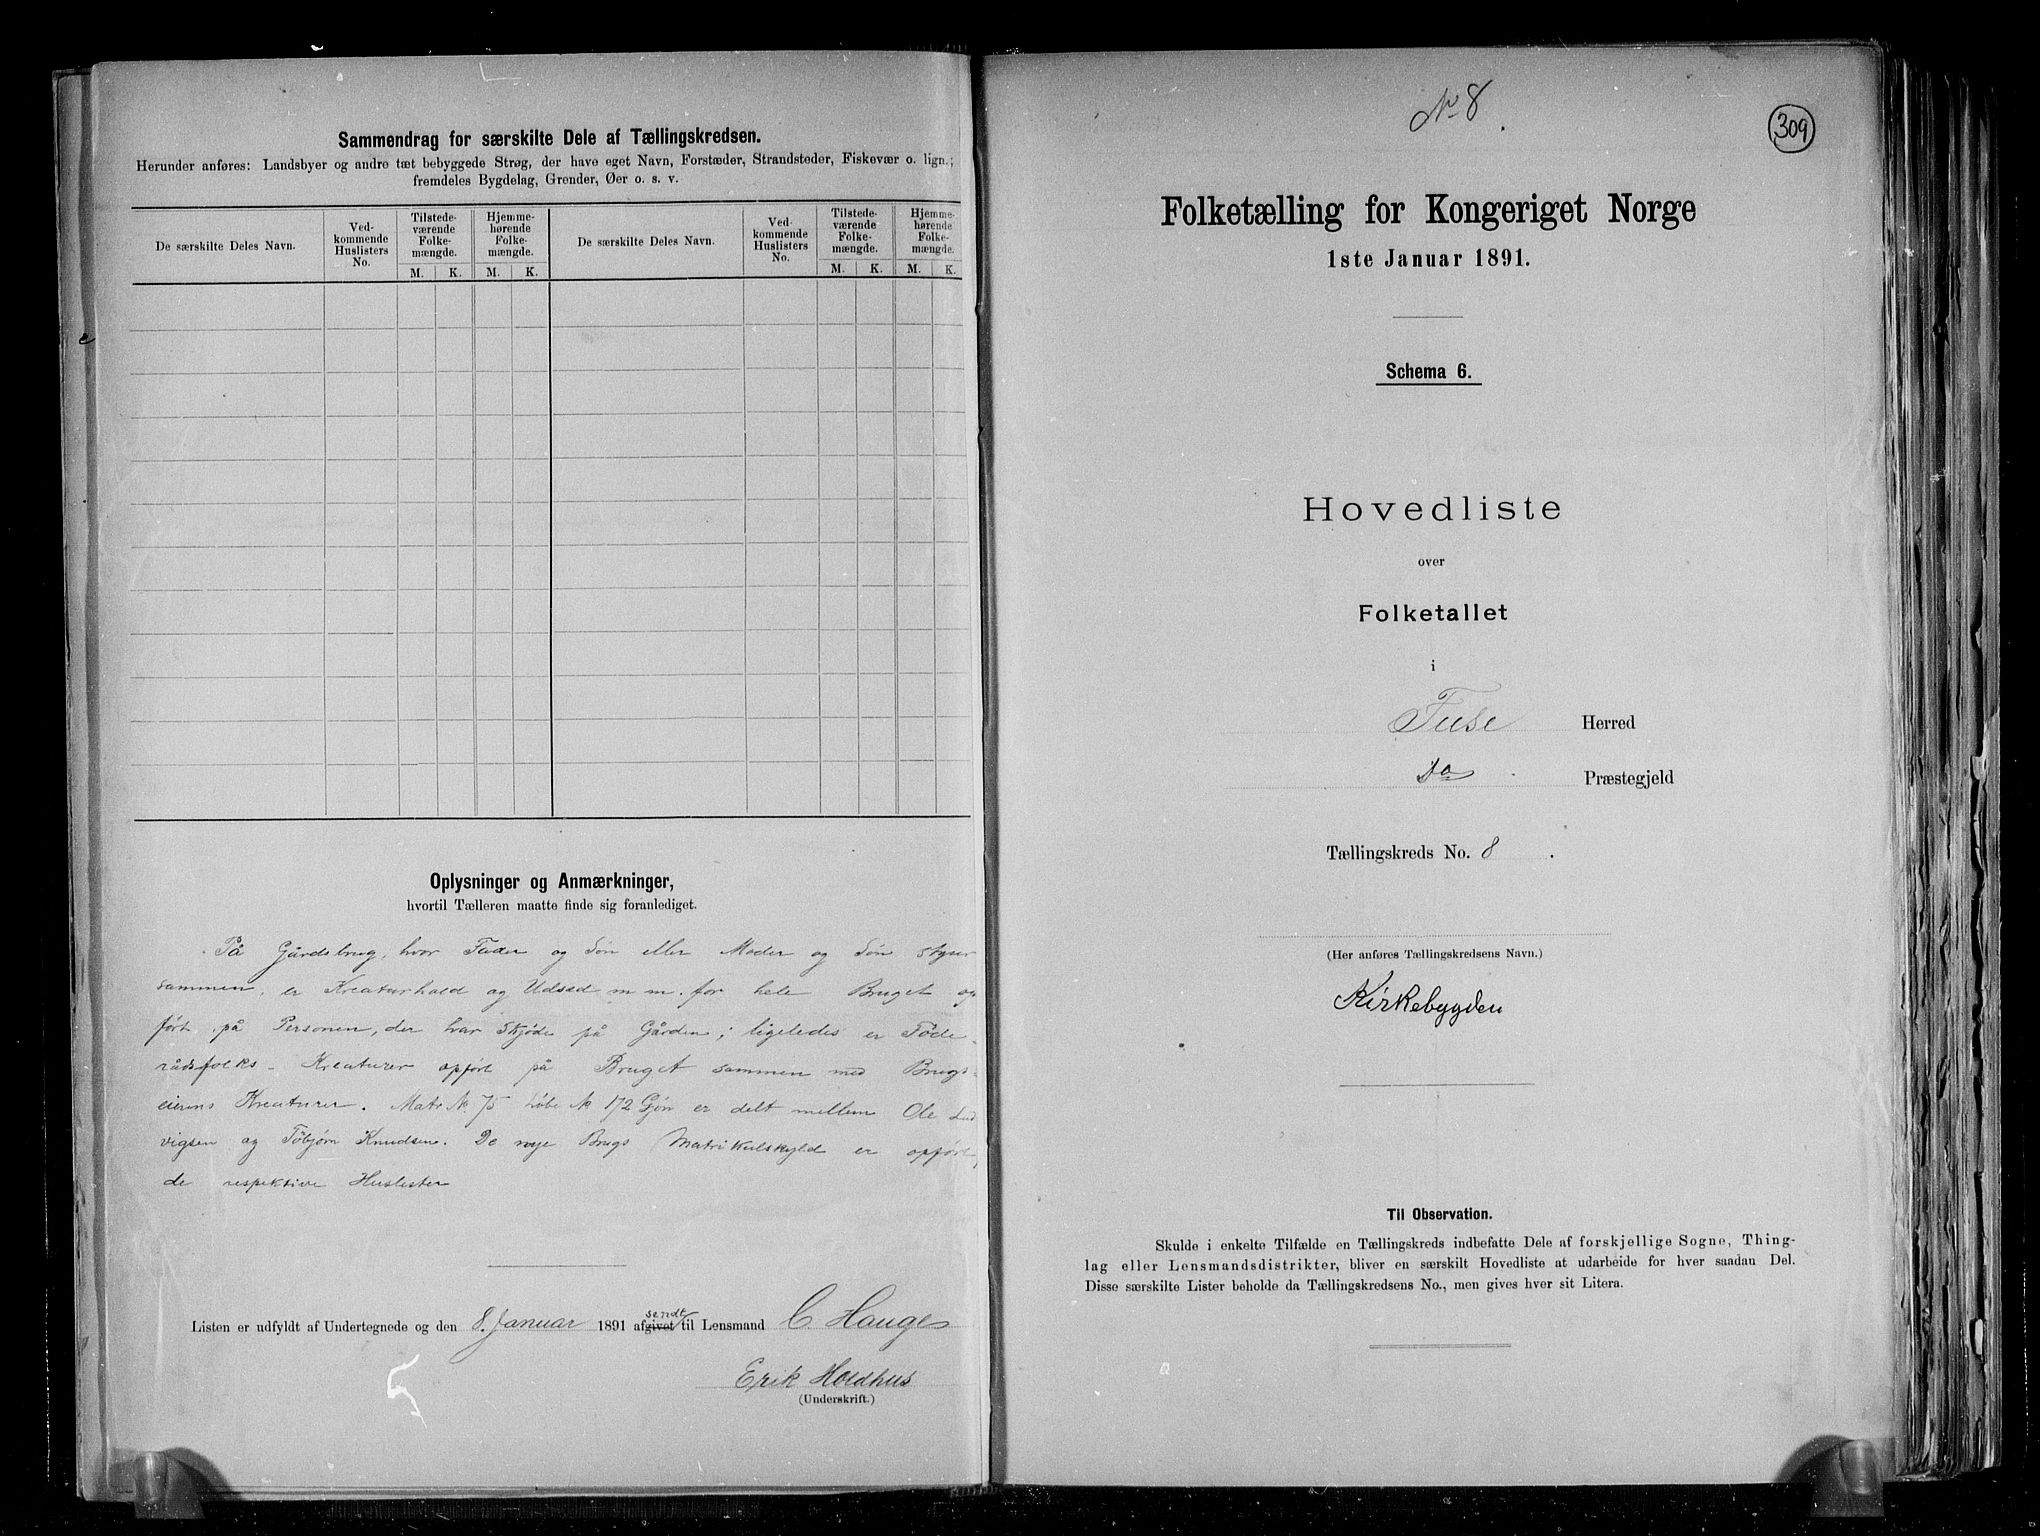 Sammendrag for særskilte Dele af Tællingskredsen.
Herunder anføres: Landsbyer og andre tæt bebyggede Strøg, der have eget Navn, Forstæder, Strandsteder, Fiskevær o. lign.;
fremdeles Bygdelag, Grender, Øer o. s. v.
De særskilte Deles Navn.
Ved-
kommende
Huslisters
No.
Tilstede-
værende
Folke-
mængde.
M. K.
Hjemme-
hørende
Folke-
mængde.
M. K.
De særskilte Deles Navn.
Ved-
kommende
Huslisters
No.
Tilstede-
værende
Folke-
mængde.
M. K.
Hjemme-
hørende
Folke-
mængde.
M. K.
Oplysninger og Anmærkninger,
hvortil Tælleren maatte finde sig foranlediget.
På Gårdsbrug, hvor Fader og Søn eller Moder og Søn styrer
sammen, er Kreaturhold og Udsæd m m. for hele Bruget op
ført på Personen, der har Skjøde på Gården; ligeledes er Føde-
rådsfolks Kreaturer opført på Bruget sammen med Brugs-
eierens Kreaturer. Matr № 75 Løbe № 172 Gjøn er delt mellem Ole Lud
vigsen og Tobjørn Knudsen. De nye Brugs Matrikulskyld er opført
de respektive Huslister
Listen er udfyldt af Undertegnede og den 8. Januar 1891 afgivet sendt til Lensmand C. Hauge
Erik Holdhus
(Underskrift.)
№ 8
309
Folketælling for Kongeriget Norge
1ste Januar 1891.
Schema 6.
Hovedliste
over
Folketallet
i
Fuse Herred
Do Præstegjeld
Tællingskreds No. 8.
(Her anføres Tællingskredsens Navn.)
Kirkebygden
Til Observation.
Skulde i enkelte Tilfælde en Tællingskreds indbefatte Dele af forskjellige Sogne, Thing-
lag eller Lensmandsdistrikter, bliver en særskilt Hovedliste at udarbeide for hver saadan Del.
Disse særskilte Lister beholde da Tællingskredsens No., men gives hver sit Litera.